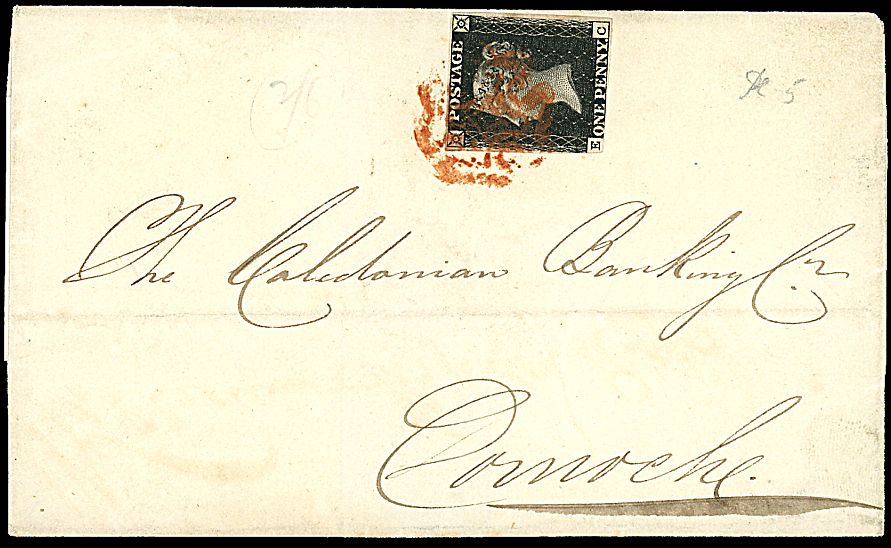 POSTAGE
ONE PENNY.
E C
(2/6
Pl 5
The Caledonian Banking Co.
Dornoch.